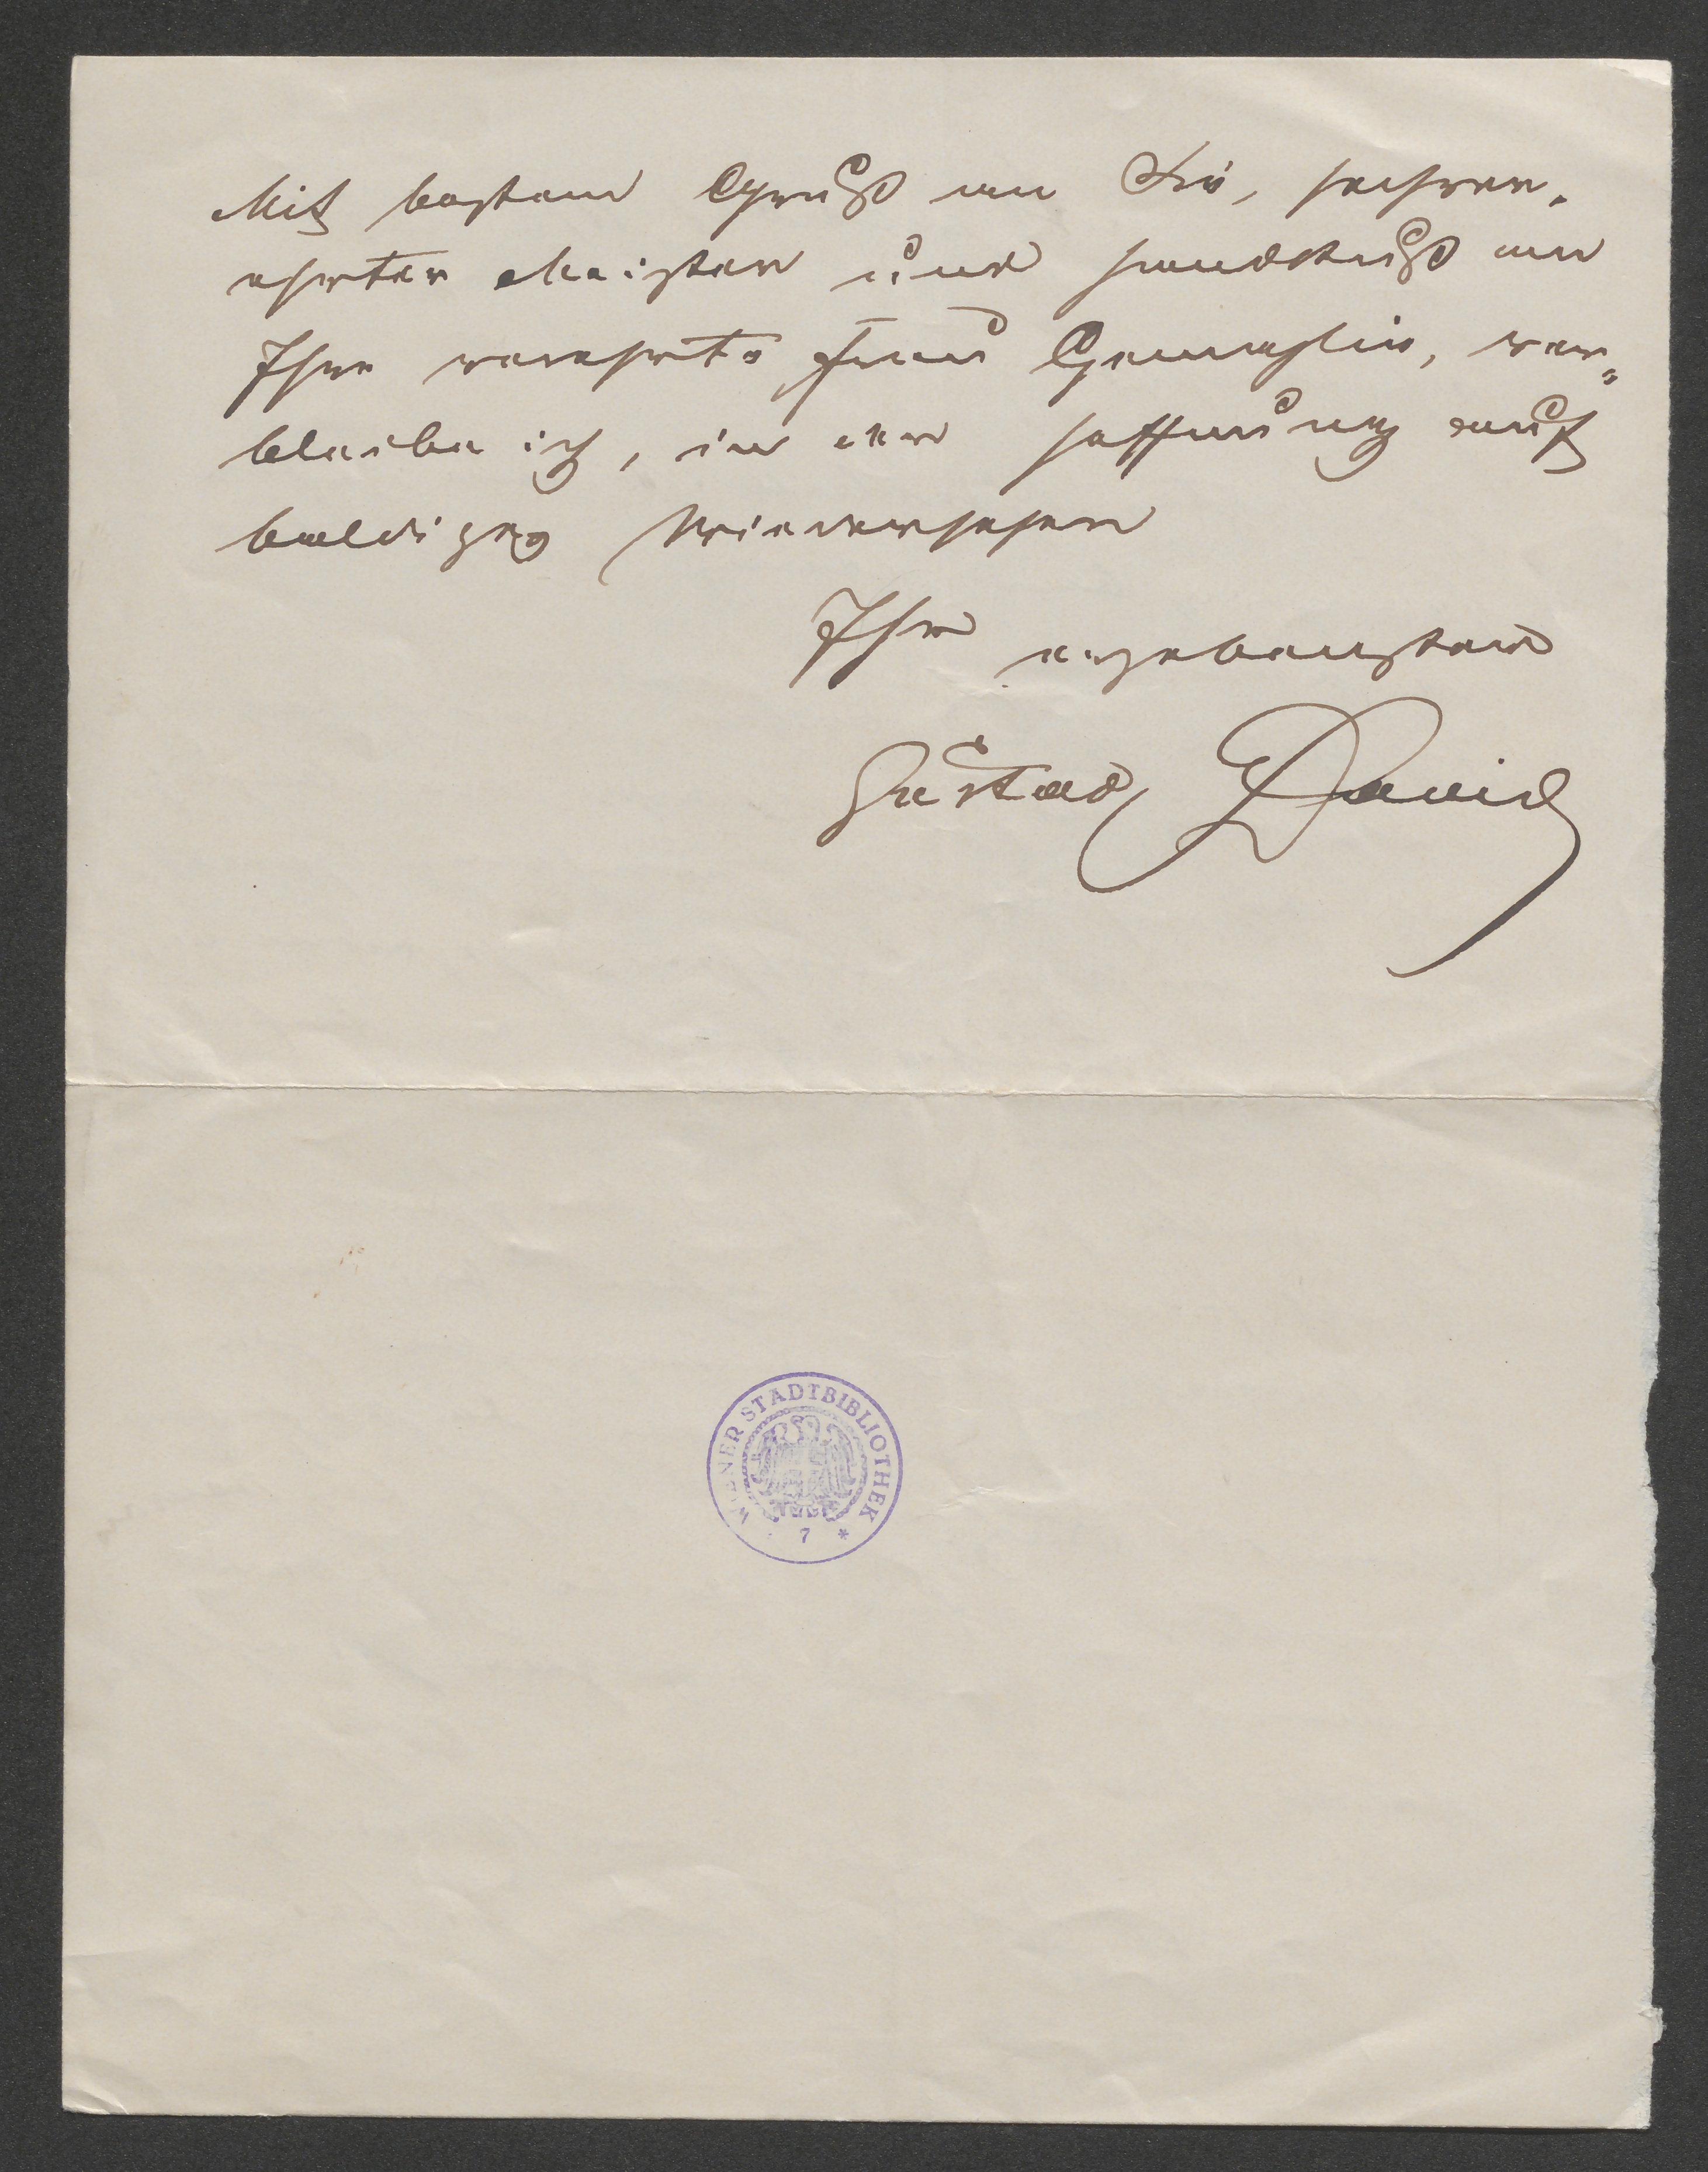 Mit bestem Gruß an Sie, hochver-
ehrter Meister und Handkuß an
Ihre verehrte Frau Gemahlin, ver=
bleibe ich, in der Hoffnung auf
baldiges Wiedersehen
Ihr ergebenster
Gustav David
WIENER STADTBIBLIOTHEK
7 *